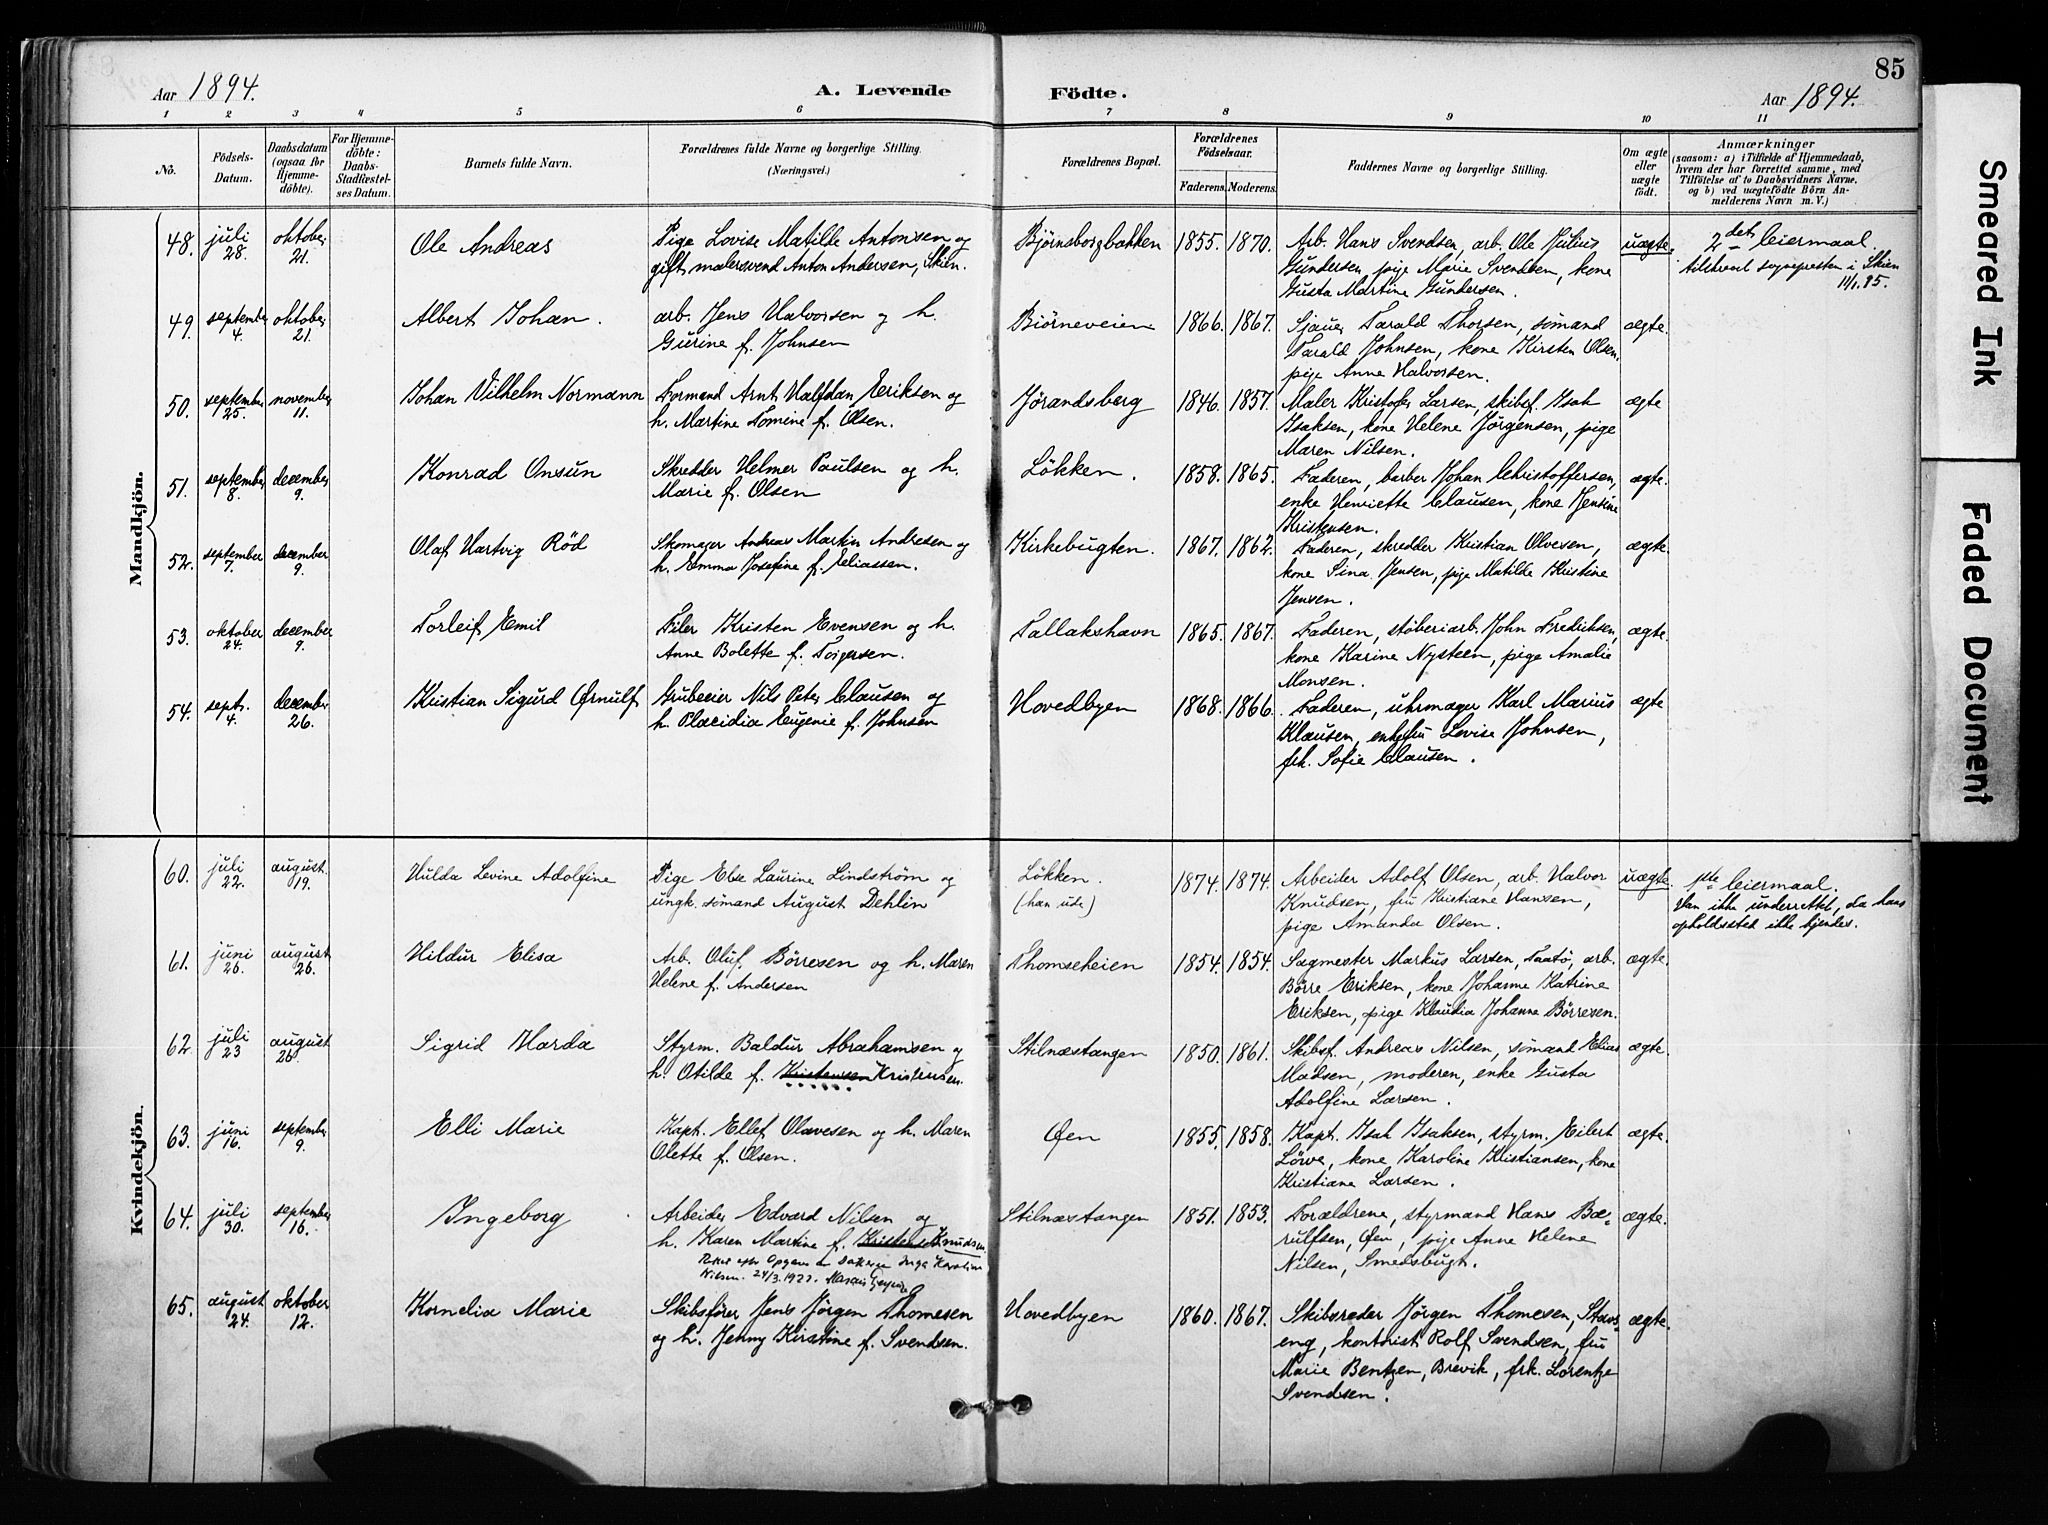 85
Aar 1894.
A. Levende Födte.
Aar 1894.
1 2 3 4 5 6 7 8 9 10 11
No.
Födsels-Datum.
Daabsdatum (ogsaa for Hjemme-döbte).
For Hjemme-döbte: Daabs-Stadfæstel-ses Datum.
Barnets fulde Navn.
Forældrenes fulde Navne og borgerlige Stilling. (Næringsvei.)
Forældrenes Bopæl.
Forældrenes Födselsaar.
Faderens. Moderens.
Faddernes Navne og borgerlige Stilling.
Om ægte eller uægte födt.
Anmærkninger
(saasom: a) i Tilfælde af Hjemmedaab,
hvem der har forrettet samme, med
Tilföielse af to Daabsvidners Navne.
og b) ved uægtefödte Börn An-
melderens Navn m. V.)
Mandkjön.
48. juli 28. oktober 21. Ole Andreas
Pige Lovise Matilde Antonsen og
gift malersvend Anton Andersen, Skien.
Bjørnsborgbakken 1855. 1870.
Arb. Hans Svendsen, arb. Ole Julius
Gundersen, pige Marie Svendsen, kone
Gusta Martine Gundersen.
uægte.
2det leiermaal.
tilskrevet sognepresten i Skien
11/1.95.
49. september 4. oktober 21. Albert Johan.
arb. Jens Halvorsen og h.
Gurine f. Johnsen
Bjørneveien 1866. 1867.
Sjauer Tarald Thorsen, sømand
Tarald Johnsen, kone Kirsten Olsen.
pige Anne Halvorsen.
ægte.
50. september 25. november 11. Johan Vilhelm Normann
Formand Arnt Halfdan Eriksen og
h. Martine Tomine f. Olsen.
Jørandsberg 1846. 1857.
Maler Kristofer Larsen, skibsf. Isak
Isaksen, kone Helene Jørgensen, pige
Maren Nilsen.
ægte
51. september 8. december 9. Konrad Onsun
Skredder Helmer Paulsen og h.
Marie f. Olsen
Løkken. 1858. 1865.
Faderen, barber Johan Christoffersen,
enke Henriette Clausen, kone Jensine
Kristensen.
ægte.
52. september 7. december 9. Olaf Hartvig Rød
Skomager Andreas Martin Andresen og
h. Emma Josefine f. Eliassen.
Kirkebugten. 1867. 1862.
Faderen, skredder Kristian Olvesen,
kone Sina Jensen, pige Matilde Kristine
Jensen.
ægte.
53. oktober 24. december 9. Torleif Emil
Filer Kristen Evensen og h.
Anne Bolette f. Torgersen.
Tallakshavn 1865. 1867.
Faderen, støberiarb. John Fredriksen,
kone Karine Nysteen, pige Amalie
Monsen.
ægte.
54. sept. 4. december 26. Kristian Sigurd Ørnulf
Grubeeier Nils Peter Clausen og
h. Placidia Eugenie f. Johnsen
Hovedbyen 1868. 1866.
Faderen, uhrmager Karl Marius
Klausen, enkefru Lovise Johnsen,
frk. Sofie Clausen.
ægte
Kvindekjön.
60. juli 22. august. 19. Hulda Levine Adolfine
Pige Else Laurine Lindstrøm og
ungk. sømand August Dehlin
Løkken.
(han ude)
1874. 1874.
Arbeider Adolf Olsen, arb. Halvor
Knudsen, fru Kristiane Hansen,
pige Amanda Olsen.
uægte.
1ste leiermaal.
Han ikke underrettet, da hans
opholdssted ikke kjendes.
61. juni 26. august 26. Hildur Elisa
Arb. Oluf Børresen og h. Maren
Helene f. Andersen
Thomseheien 1854. 1854.
Sagmester Markus Larsen, Taatø, arb.
Børre Eriksen, kone Johanne Katrine
Eriksen, pige Klaudia Johanne Børresen.
ægte.
62. juli 23 august 26. Sigrid Harda
Styrm. Baldur Abrahamsen og
h. Otilde f. Kristensen Kristensen.
Stilnæstangen 1850. 1861.
Skibsf. Andreas Nilsen, sømand Elias
Madsen, moderen, enke Gusta
Adolfine Larsen.
ægte.
63. juni 16. september 9. Elli Marie
Kapt. Ellef Olavesen og h. Maren
Olette f. Olsen.
Øen 1855. 1858.
Kapt. Isak Isaksen, styrm. Eilert
Løwe, kone Karoline Kristiansen, kone
Kristiane Larsen.
ægte.
64. juli 30. september 16. Ingeborg
Arbeider Edvard Nilsen og
h. Karen Martine f. Knudsen.
Rettet efter Opgave Inga Karoline
Nilsen. 24/3.1922.
Stilnæstangen 1851. 1853.
Forældrene, styrmand Hans Bæ-
rulfsen, Øen, pige Anne Helene
Nilsen, Smedsbugt.
ægte.
65. august 24. oktober 12. Kornelia Marie
Skibsfører Jens Jørgen Thomesen
og h. Jenny Kirstine f. Svendsen.
Hovedbyen 1860. 1867.
Skibsreder Jørgen Thomesen, Stavs-
eng, kontorist Rolf Svendsen, fru
Marie Bentzen, Brevik, frk. Lorentze
Svendsen.
ægte.
Smeared Ink
Faded Document